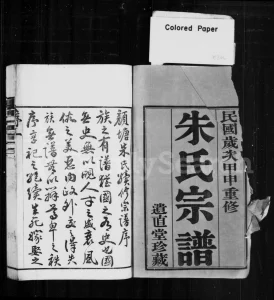 Colored Paper
民國歲次甲申重修
朱氏宗譜
遺直堂珍藏
顧塘朱氏續修宗譜序
族之有譜猶國之有史也國
無史無以明人才之盛衰風
俗之美惡內政外交之得失
族無譜無以辨尊卑之秩
序享祀之繼續生死嫁娶之